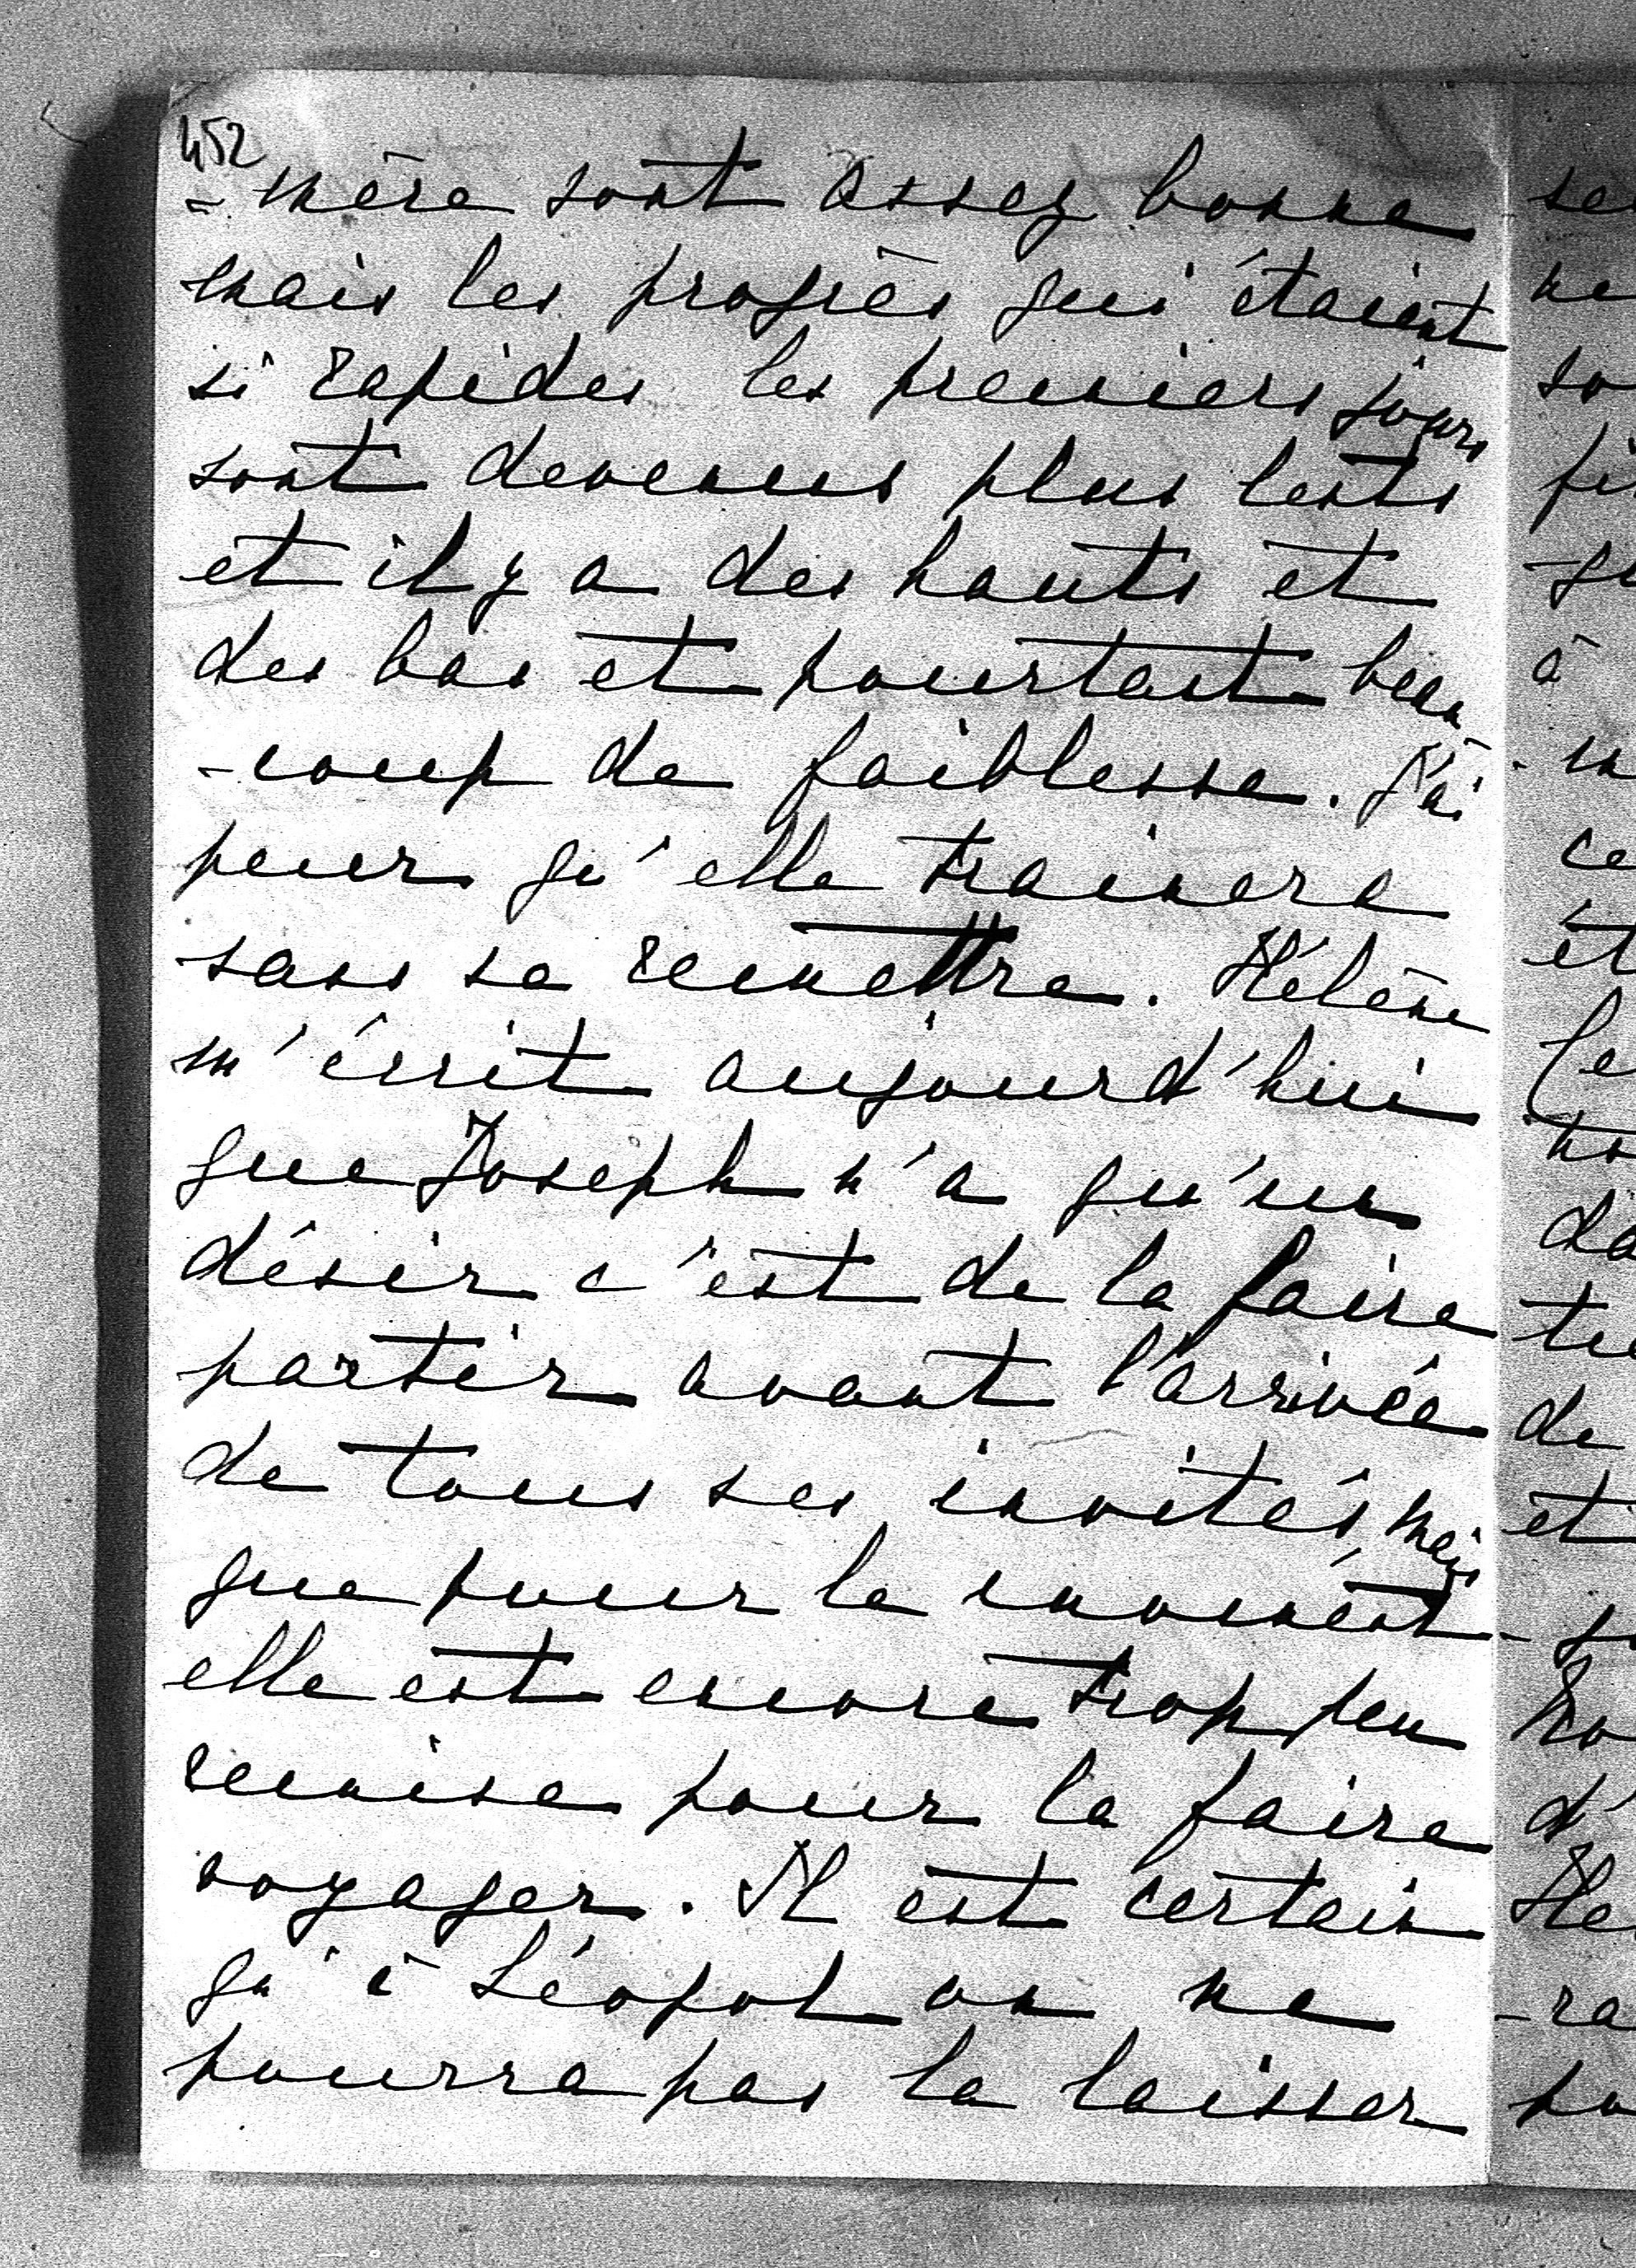 452
-mère sont assez bonne
mais les progrès qui étaient
si rapides les premiers jours
sont devenus plus lents
et il y a des hauts et
des bas et pourtant beau
-coup de faiblesse. J'ai
peur qu'elle trainera
sans se remettre. Hélène
m'écrit aujourd'hui
que Joseph n'a qu'un
désir c'est de la faire
partir avant l'arrivée
de tous ses invités mais
que pour le moment
elle est encore trop peu
remise pour la faire
voyager. Il est certain
qu'à Léopol on ne
pourra pas la laisser